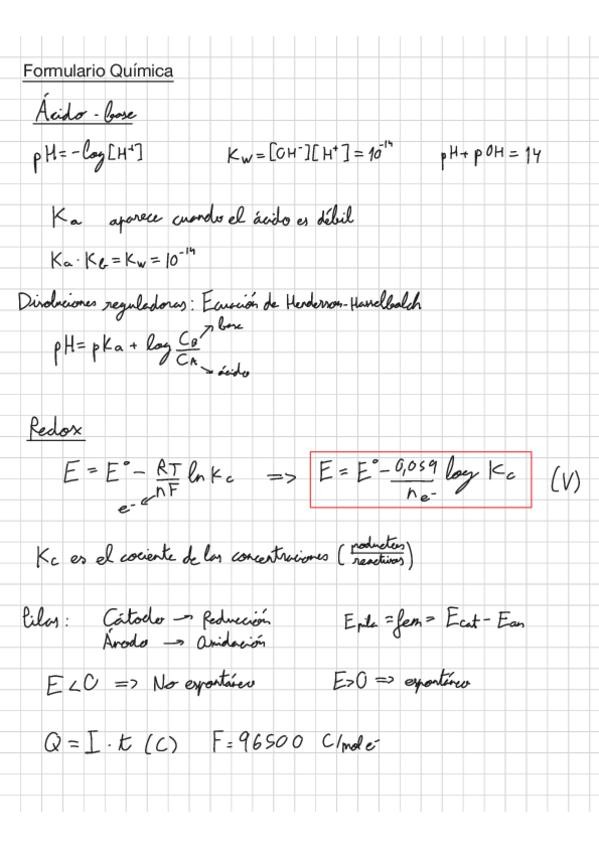 Formulario Química
Ácido-base
pH = -log[H⁺]   Kw = [OH⁻][H⁺] = 10⁻¹⁴   pH + pOH = 14
Ka aparece cuando el ácido es débil
Ka · Kb = Kw = 10⁻¹⁴
Disoluciones reguladoras: Ecuación de Henderson-Hasselbalch
pH = pKa + log C_B/C_A → base → ácido
Redox
E = E° - RT/nF ln Kc => E = E° - 0,059/n e⁻ log Kc (V)
e⁻
Kc es el cociente de las concentraciones (productos/reactivos)
Pilas: Cátodo → Reducción   E pila = fem = E cat - E an
Ánodo → oxidación
E < 0 => No espontáneo   E > 0 => espontáneo
Q = I · t (C)   F = 96500 C/mol e⁻